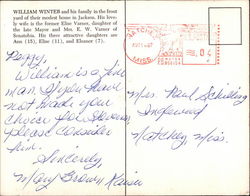 WILLIAM WINTER and his family in the front
yard of their modest home in Jackson. His love-
ly wife is the former Elise Varner, daughter of
the late Mayor and Mrs. E. W. Varner of
Senatobia. His three attractive daughters are
Ann (15), Elise (11), and Eleanor (7).
NATCHEZ
MISS.
.04
Peggy,
William is a fine
man. If you have
not made your
choice for Governor,
please consider
him.
Sincerely,
Mary Brown
Mrs. Paul Schilling
Inglewood
Natchez, Miss.